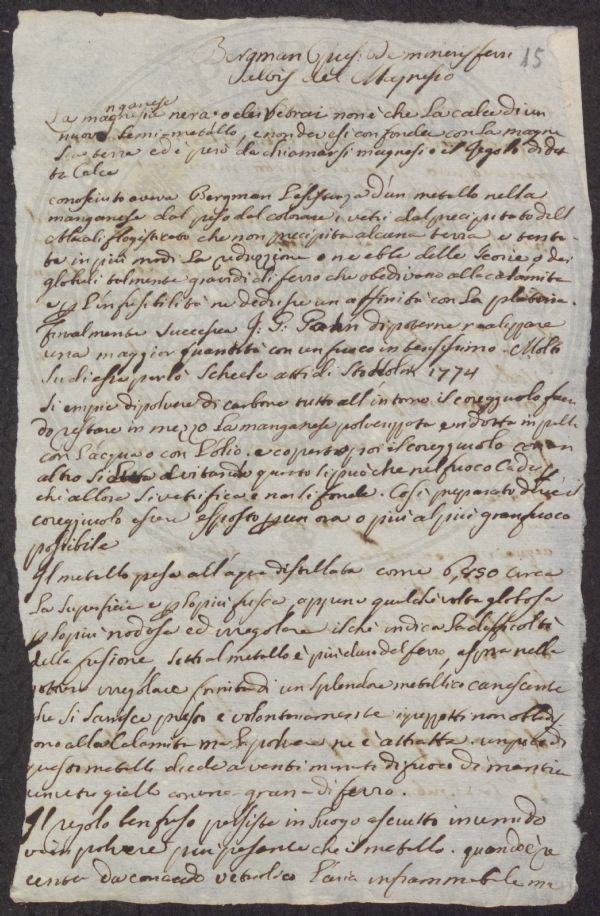 Bergman Opus: De mineris ferri
15
albis del Magnesio
nganese
La magnesia nera o de Vetrai non è che La calce di un
nuovo Semi-metallo, e non devesi confonder con la magne
sia terra ed è però da chiamarsi magnesio e il Regolo di det
ta Calce
conosciuto aveva Bergman L'esistenza d'un metallo nella
manganese dal peso dal colorare i vetri dal precipitato dell
Alkali flogisticato che non precipita alcuna terra e tento
in più modi La reduzione o ne ebbe delle scorie o dei
globuli talmente gravidi di ferro che obedivano alla calamita
e L'infusibilità ne dedusse un affinità con La platina.
finalmente successe a J: G: Gahn di poterne realizzare
una maggior quantità con un fuoco intensissimo. Molto
Su di essa però Scheele atti di Stockolm 1774
Si empie di polvere di carbone tutto all'intorno il coreggiuolo facen
do restare in mezzo La manganese polverizzata ridotta in palla
con L'acqua o con L'olio. e coperto poi il coreggiuolo con un
altro si evitando quanto si può che nel fuoco Cada
chi allora Si vetrifica e non si fonde. Così preparato deve il
coreggiuolo essere esposto un ora o più al più gran fuoco
possibile
Il metallo pesa all'aqua distillata come 6,850 circa
La Superficie e lo più fusca appena qualche volta globosa
lo più nodosa ed irregolare il che indica La difficoltà
della fusione, Sotti al metallo è più duro del ferro, aspra nella
rottura irregolare fornita di un splendore metallico canescente
che Si scurisce presto e volontariamente i pezzotti non obedis
cono alla Calamita ma La polvere ne è attratta. un poco di
questo metallo diede a venti minuti di fuoco di mantice
un vetro giallo con una grana di ferro.
Il regolo ben fuso persiste in Luogo asciutto in umido
và in polvere più pesante che il metallo. quando è re
cente da con acido vetriolico L'aria infiammabile ma